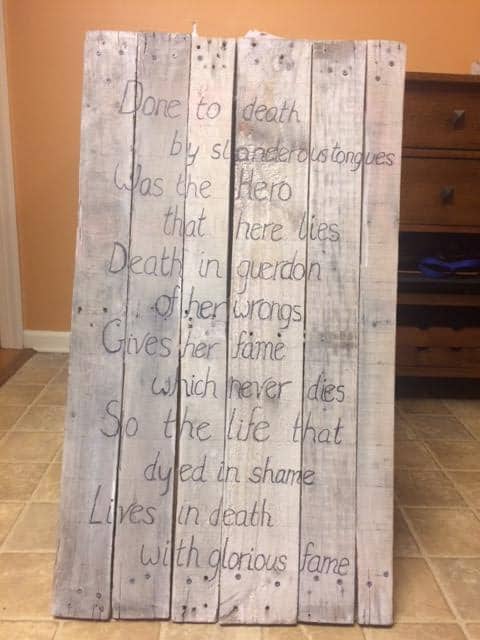 Done to death
by slanderous tongues
Was the Hero
that here lies
Death in guerdon
of her wrongs
Gives her fame
which never dies
So the life that
dyed in shame
Lives in death
with glorious fame